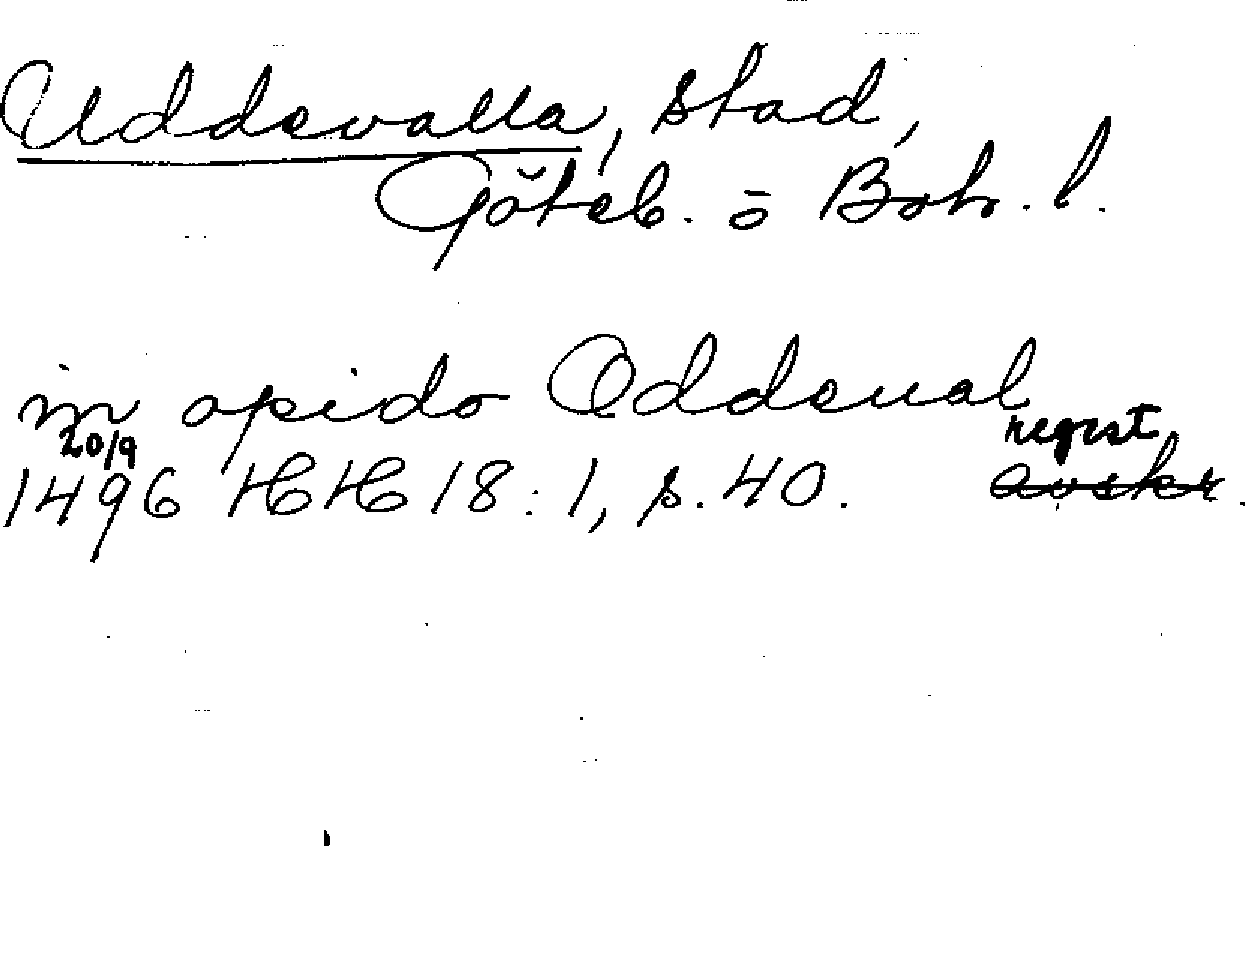 Uddevalla, stad,
Göteb. o Boh. l.
in opido Oddeual
20/9 regist
1496 HH 18:1, s. 40. avskr.